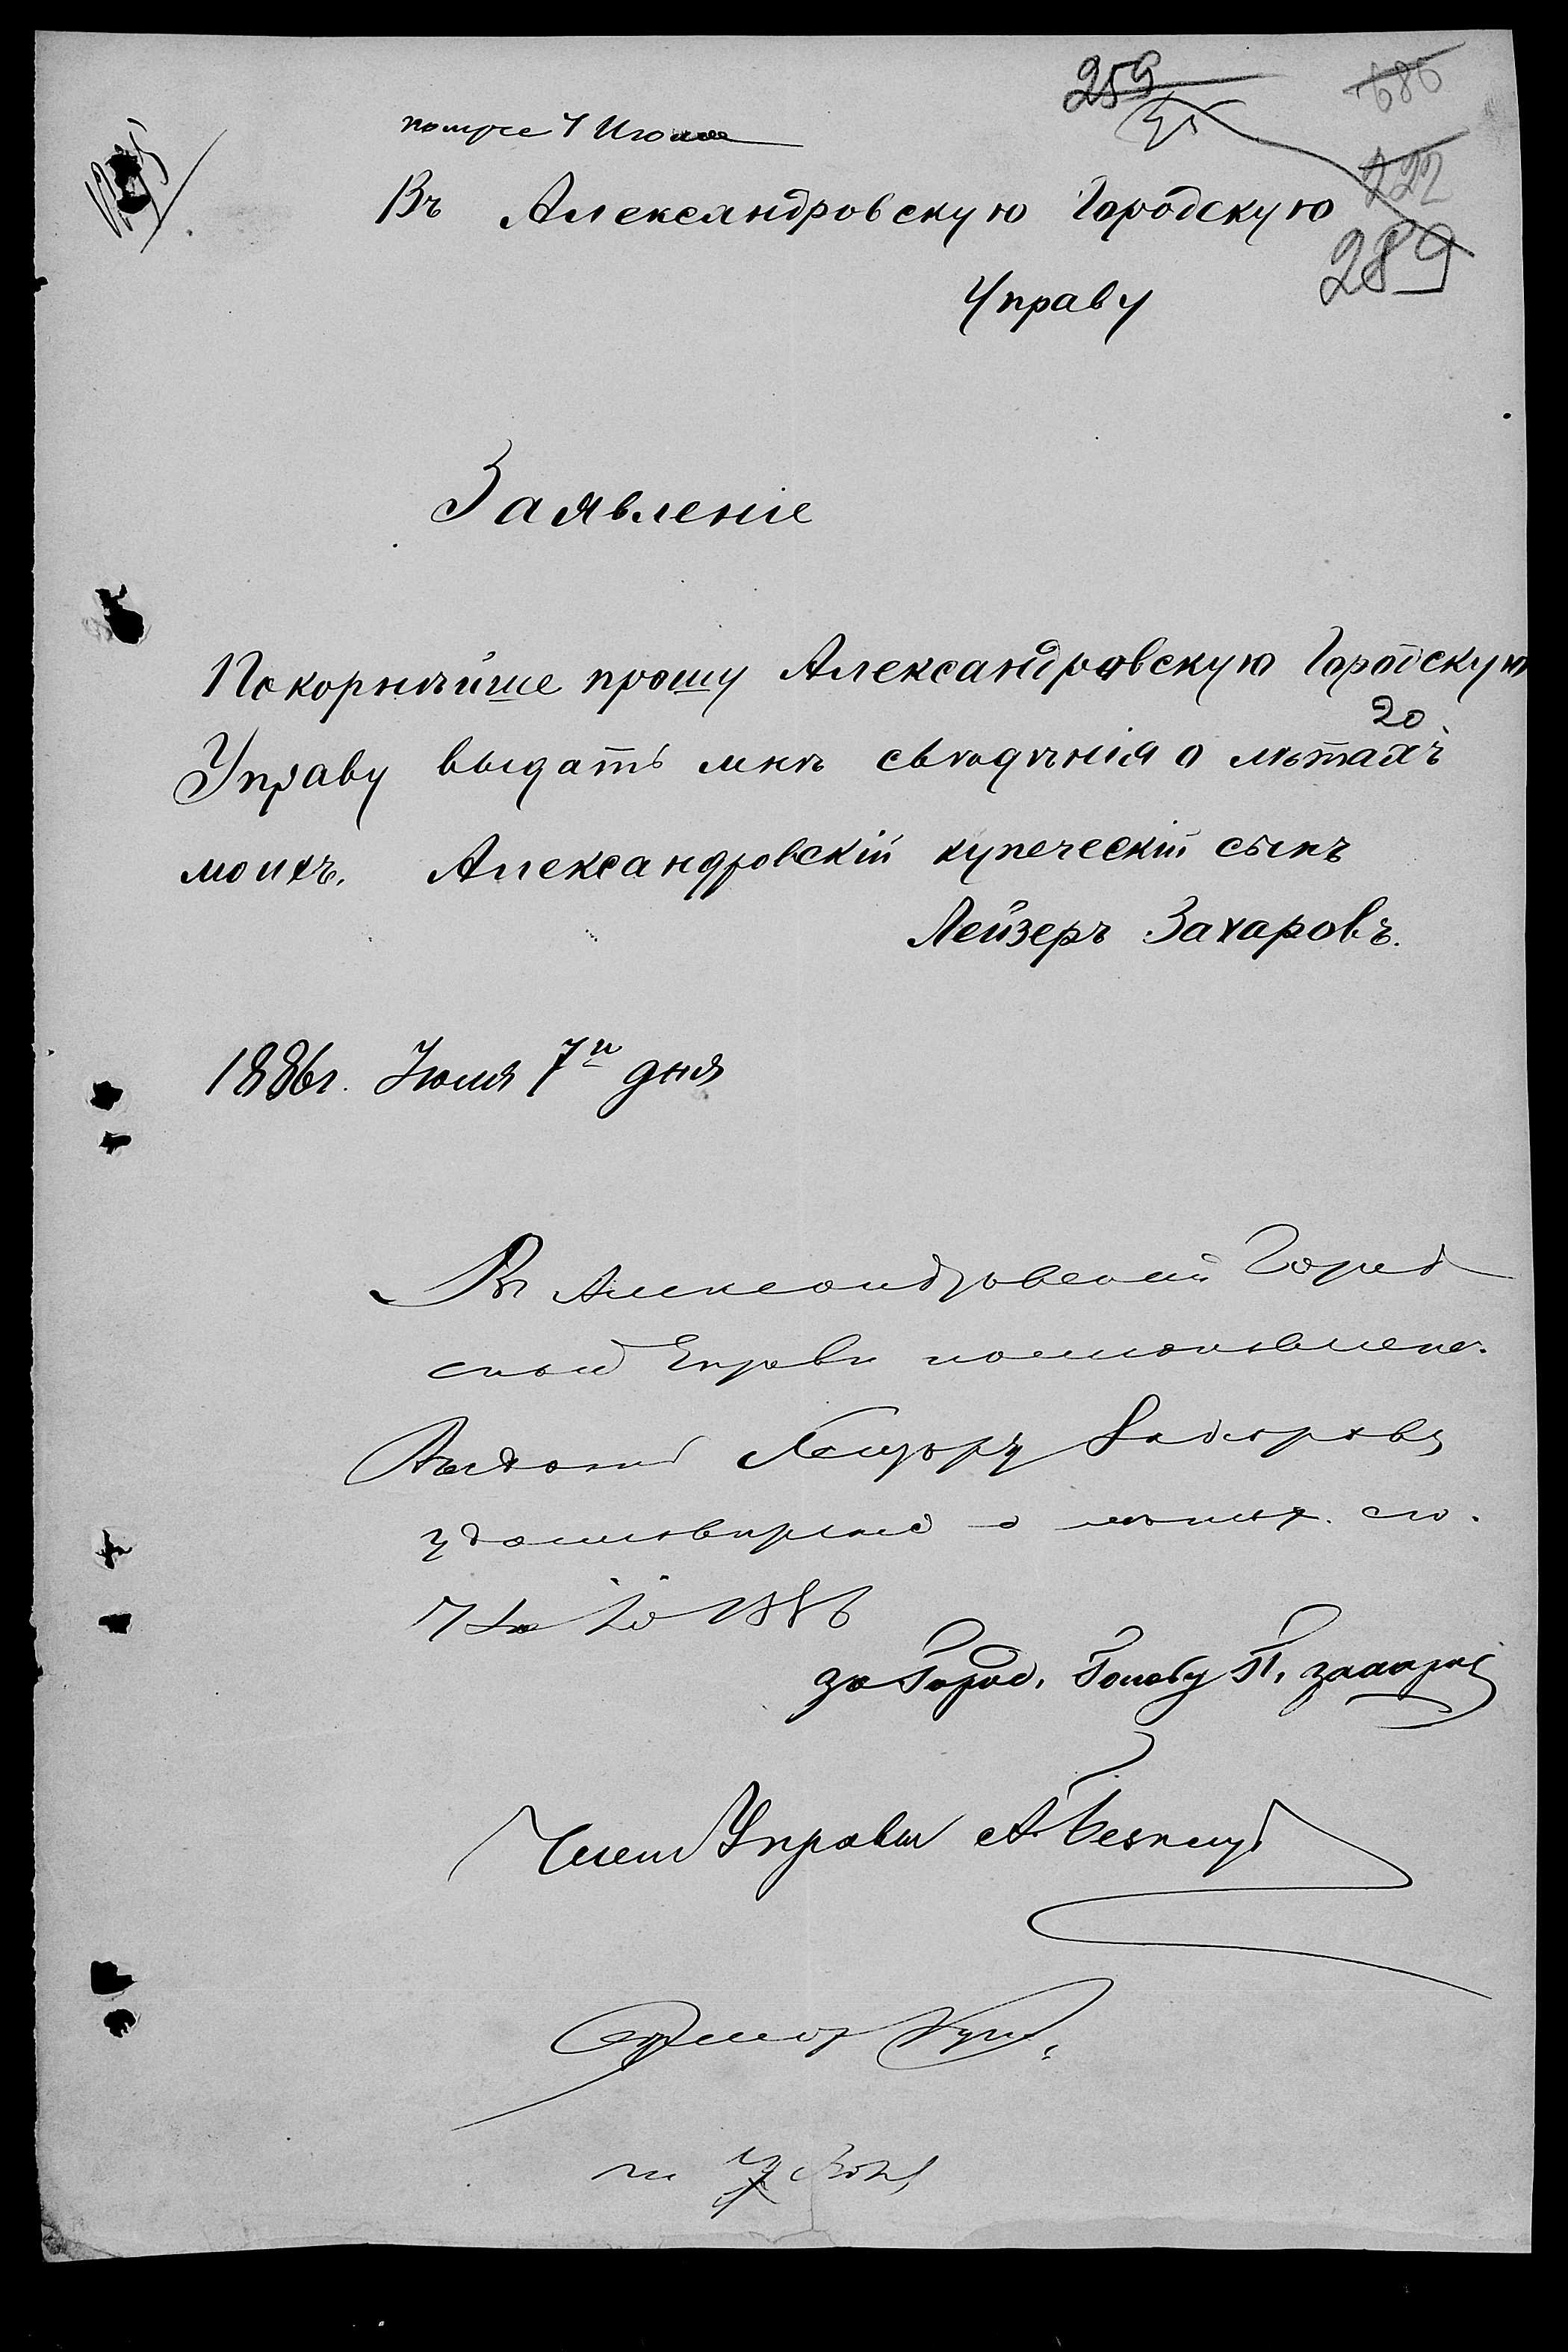 259
686
222
289
получе 7 Июля
Въ Александровскую Городскую
Управу
Заявленіе
Покорнѣйше прошу Александровскую Городскую
20
Управу выдать мнѣ свѣдѣнія о лѣтахъ
моихъ. Александровскій купеческій сынъ
Лейзеръ Захаровъ.
1886г. Июля 7го дня
Въ Александровской Город
ской Управѣ постановлено
Выдать Лейзеру Захарову
о лѣтахъ его.
7 1886
за Город. Голову П.
Членъ Управы А.